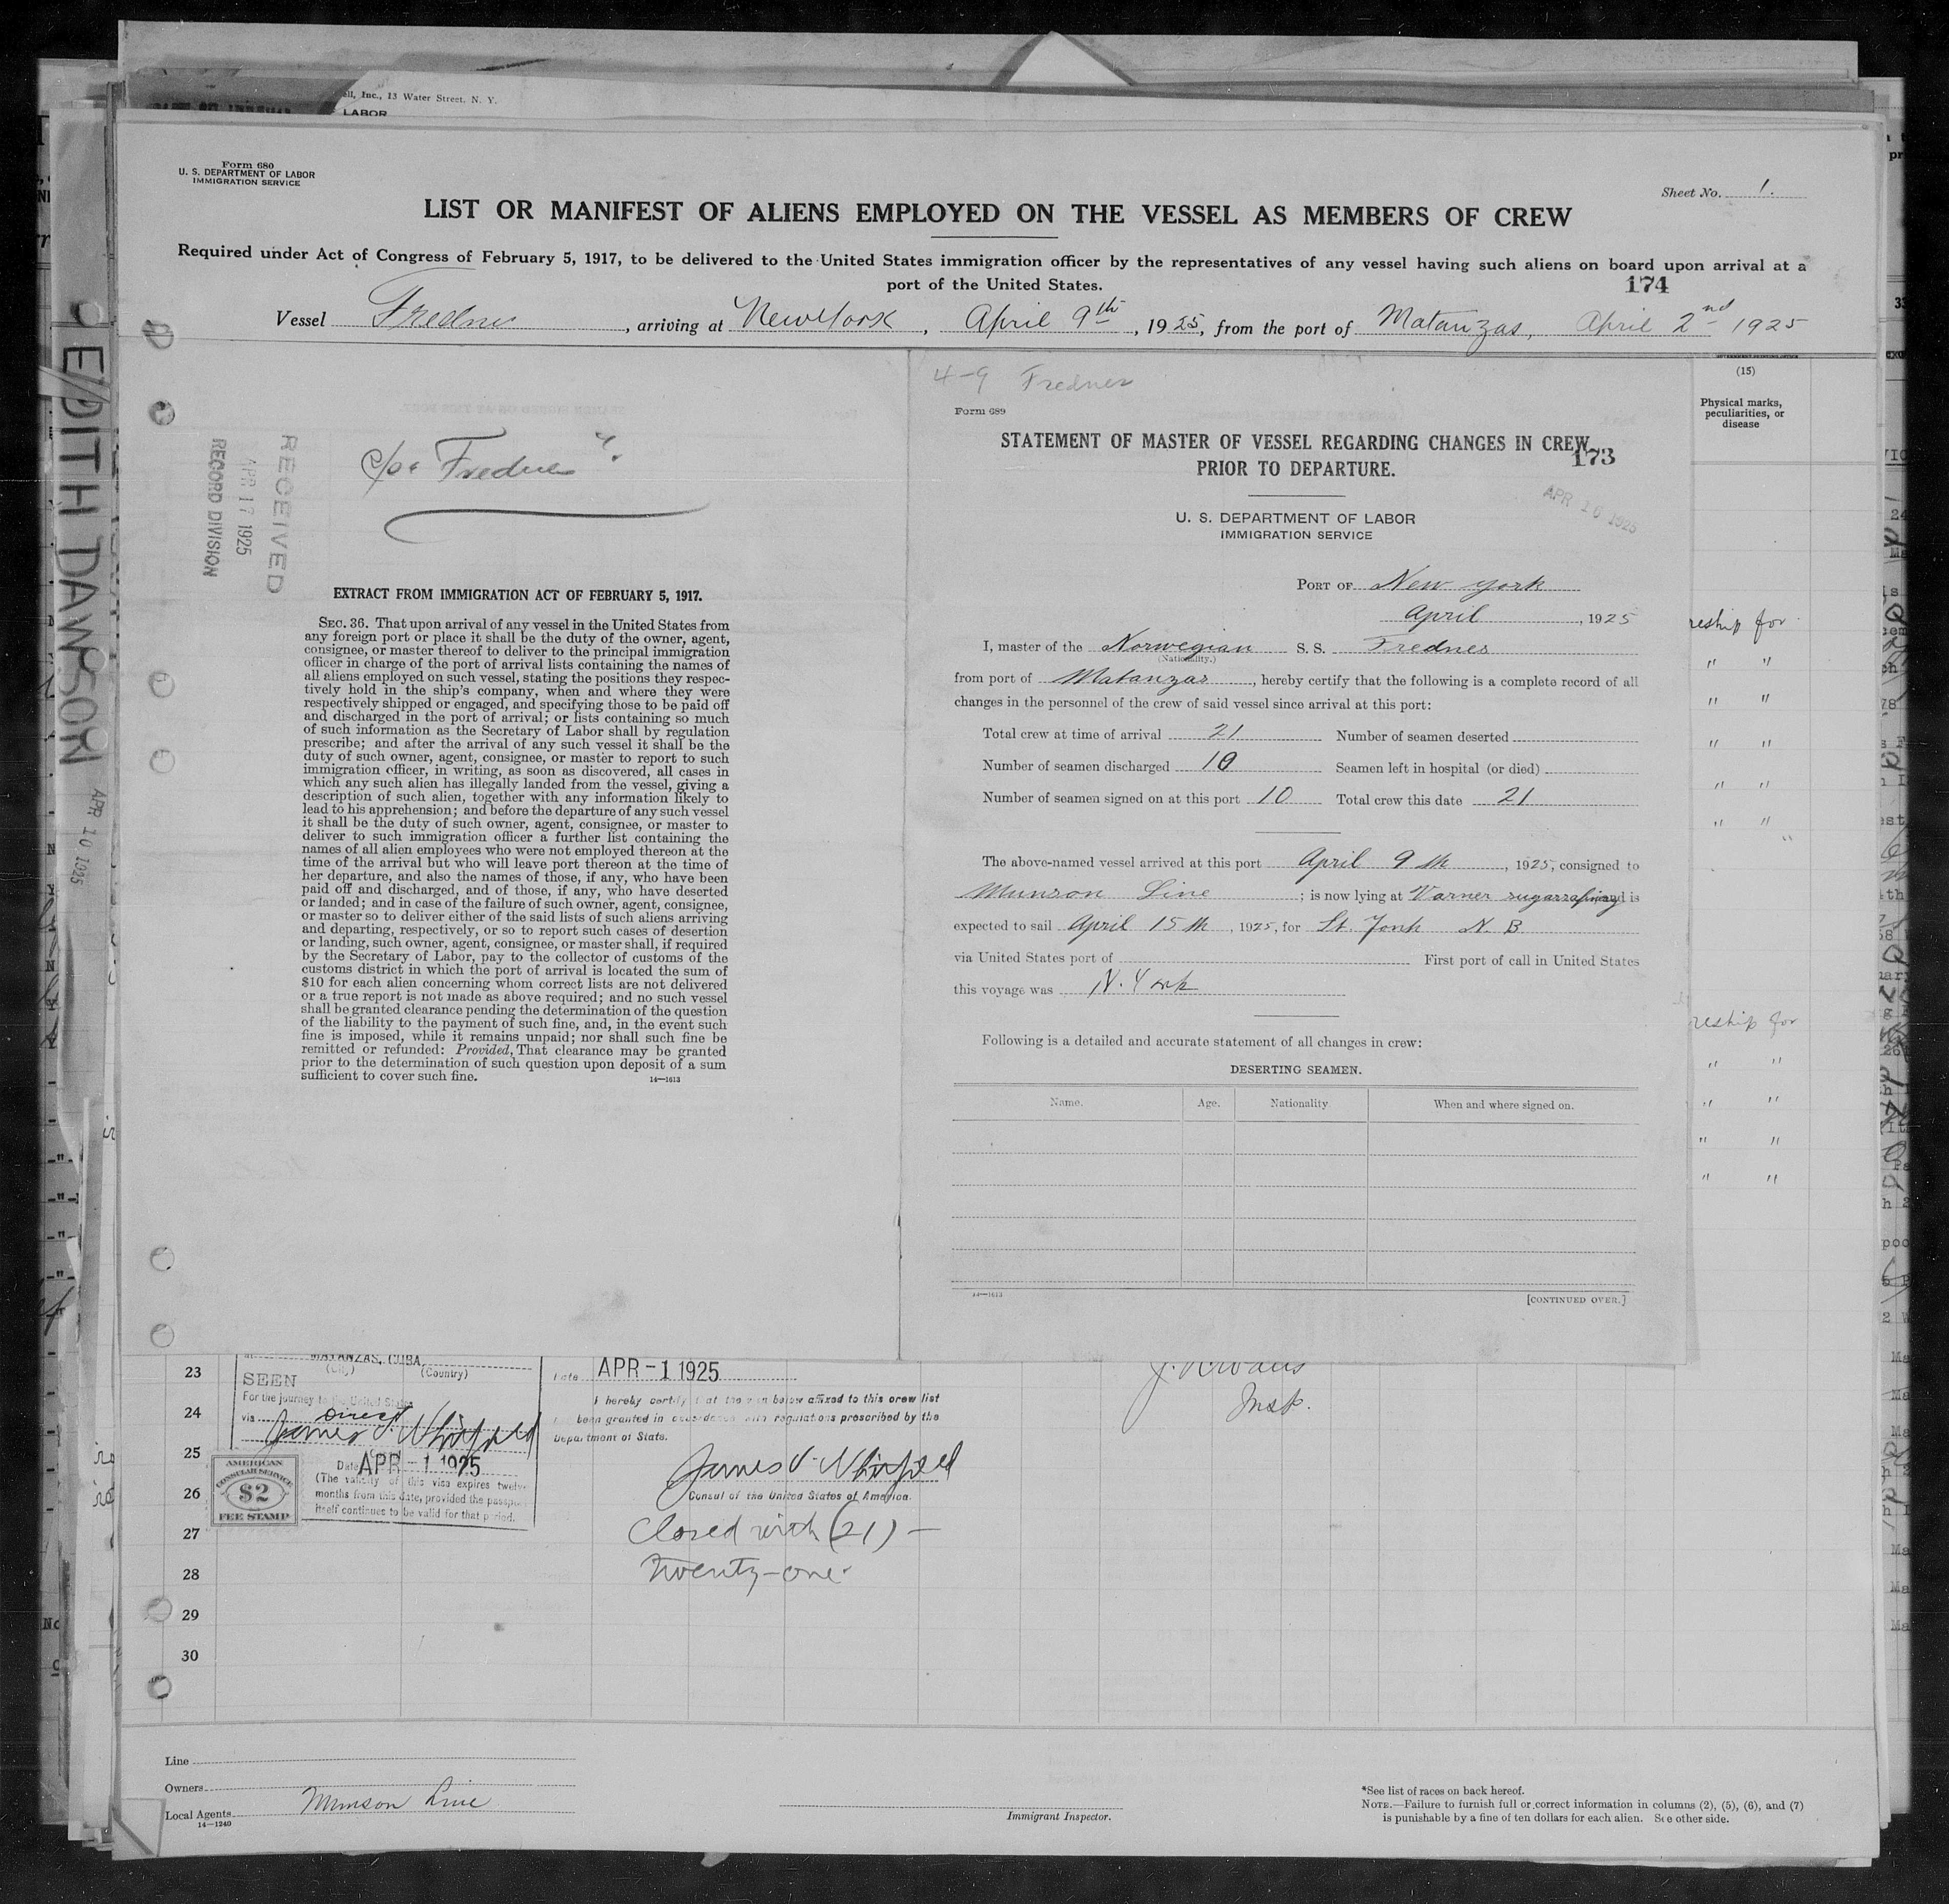 ell, Inc., 13 Water Street, N. Y.
LABOR
Form 680
U. S. DEPARTMENT OF LABOR
IMMIGRATION SERVICE
Sheet No. 1.
LIST OR MANIFEST OF ALIENS EMPLOYED ON THE VESSEL AS MEMBERS OF CREW
Required under Act of Congress of February 5, 1917, to be delivered to the United States immigration officer by the representatives of any vessel having such aliens on board upon arrival at a
port of the United States.
174
Vessel Frednes, arriving at New York, April 9th, 1925, from the port of Matanzas, April 2nd 1925
EDITH DAWSON
APR 10 1925
RECEIVED
APR 17 1925
RECORD DIVISION
Frednes
EXTRACT FROM IMMIGRATION ACT OF FEBRUARY 5, 1917.
SEC. 36. That upon arrival of any vessel in the United States from
any foreign port or place it shall be the duty of the owner, agent,
consignee, or master thereof to deliver to the principal immigration
officer in charge of the port of arrival lists containing the names of
all aliens employed on such vessel, stating the positions they respec-
tively hold in the ship's company, when and where they were
respectively shipped or engaged, and specifying those to be paid off
and discharged in the port of arrival; or lists containing so much
of such information as the Secretary of Labor shall by regulation
prescribe; and after the arrival of any such vessel it shall be the
duty of such owner, agent, consignee, or master to report to such
immigration officer, in writing, as soon as discovered, all cases in
which any such alien has illegally landed from the vessel, giving a
description of such alien, together with any information likely to
lead to his apprehension; and before the departure of any such vessel
it shall be the duty of such owner, agent, consignee, or master to
deliver to such immigration officer a further list containing the
names of all alien employees who were not employed thereon at the
time of the arrival but who will leave port thereon at the time of
her departure, and also the names of those, if any, who have been
paid off and discharged, and of those, if any, who have deserted
or landed; and in case of the failure of such owner, agent, consignee,
or master so to deliver either of the said lists of such aliens arriving
and departing, respectively, or so to report such cases of desertion
or landing, such owner, agent, consignee, or master shall, if required
by the Secretary of Labor, pay to the collector of customs of the
customs district in which the port of arrival is located the sum of
$10 for each alien concerning whom correct lists are not delivered
or a true report is not made as above required; and no such vessel
shall be granted clearance pending the determination of the question
of the liability to the payment of such fine, and, in the event such
fine is imposed, while it remains unpaid; nor shall such fine be
remitted or refunded: Provided, That clearance may be granted
prior to the determination of such question upon deposit of a sum
sufficient to cover such fine.
14—1613
4-9 Frednes
Form 689
STATEMENT OF MASTER OF VESSEL REGARDING CHANGES IN CREW
PRIOR TO DEPARTURE.
173
APR 16 1925
U. S. DEPARTMENT OF LABOR
IMMIGRATION SERVICE
PORT OF New York
April, 1925
I, master of the Norwegian S. S. Frednes
(Nationality.)
from port of Matanzas, hereby certify that the following is a complete record of all
changes in the personnel of the crew of said vessel since arrival at this port:
Total crew at time of arrival 21 Number of seamen deserted
Number of seamen discharged 10 Seamen left in hospital (or died)
Number of seamen signed on at this port 10 Total crew this date 21
The above-named vessel arrived at this port April 9th, 1925, consigned to
Munson Line; is now lying at Warner sugarrafining and is
expected to sail April 15th, 1925, for St. Jonh N. B
via United States port of First port of call in United States
this voyage was N. York
Following is a detailed and accurate statement of all changes in crew:
DESERTING SEAMEN.
Name. Age. Nationality When and where signed on.
14—1613
[CONTINUED OVER.]
(15)
Physical marks,
peculiarities, or
disease
reship for
" "
" "
" "
" "
" "
reship for
" "
" "
" "
" "
23
24
25
26
27
28
29
30
MATANZAS, CUBA
(City) (Country)
SEEN
For the journey to the United States
via direct
James V. Whitfield
Date APR -1 1925
(The validity of this visa expires twelve
months from this date, provided the passport
itself continues to be valid for that period.
AMERICAN
CONSULAR SERVICE
$2
FEE STAMP
Date APR -1 1925
I hereby certify that the visa below affixed to this crew list
been granted in accordance with regulations prescribed by the
Department of State.
James V. Whitfield
Consul of the United States of America.
Closed with (21) —
Twenty-one.
Insp.
Line
Owners
Local Agents Munson Line
14—1240
Immigrant Inspector.
*See list of races on back hereof.
NOTE.—Failure to furnish full or correct information in columns (2), (5), (6), and (7)
is punishable by a fine of ten dollars for each alien. See other side.